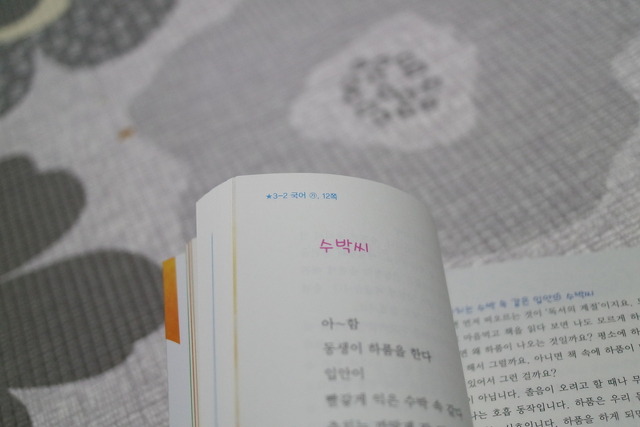 ★3-2 국어 ㉮, 12쪽
수박씨
아~함
동생이 하품을 한다
입안이
빨갛게 익은 수박 속
수박 속 같은 입안의 수박씨
먼저 떠오르는 것이 '독서의 계절'이지요.
마음먹고 책을 읽다 보면 나도 모르게 하
왜 하품이 나오는 것일까요? 평소에 하
해서 그럴까요. 아니면 책 속에 하품이
있어서 그런 걸까요?
아닙니다. 졸음이 오려고 할 때나 무
나는 호흡 동작입니다. 하품은 우리
하품을 하게 되면